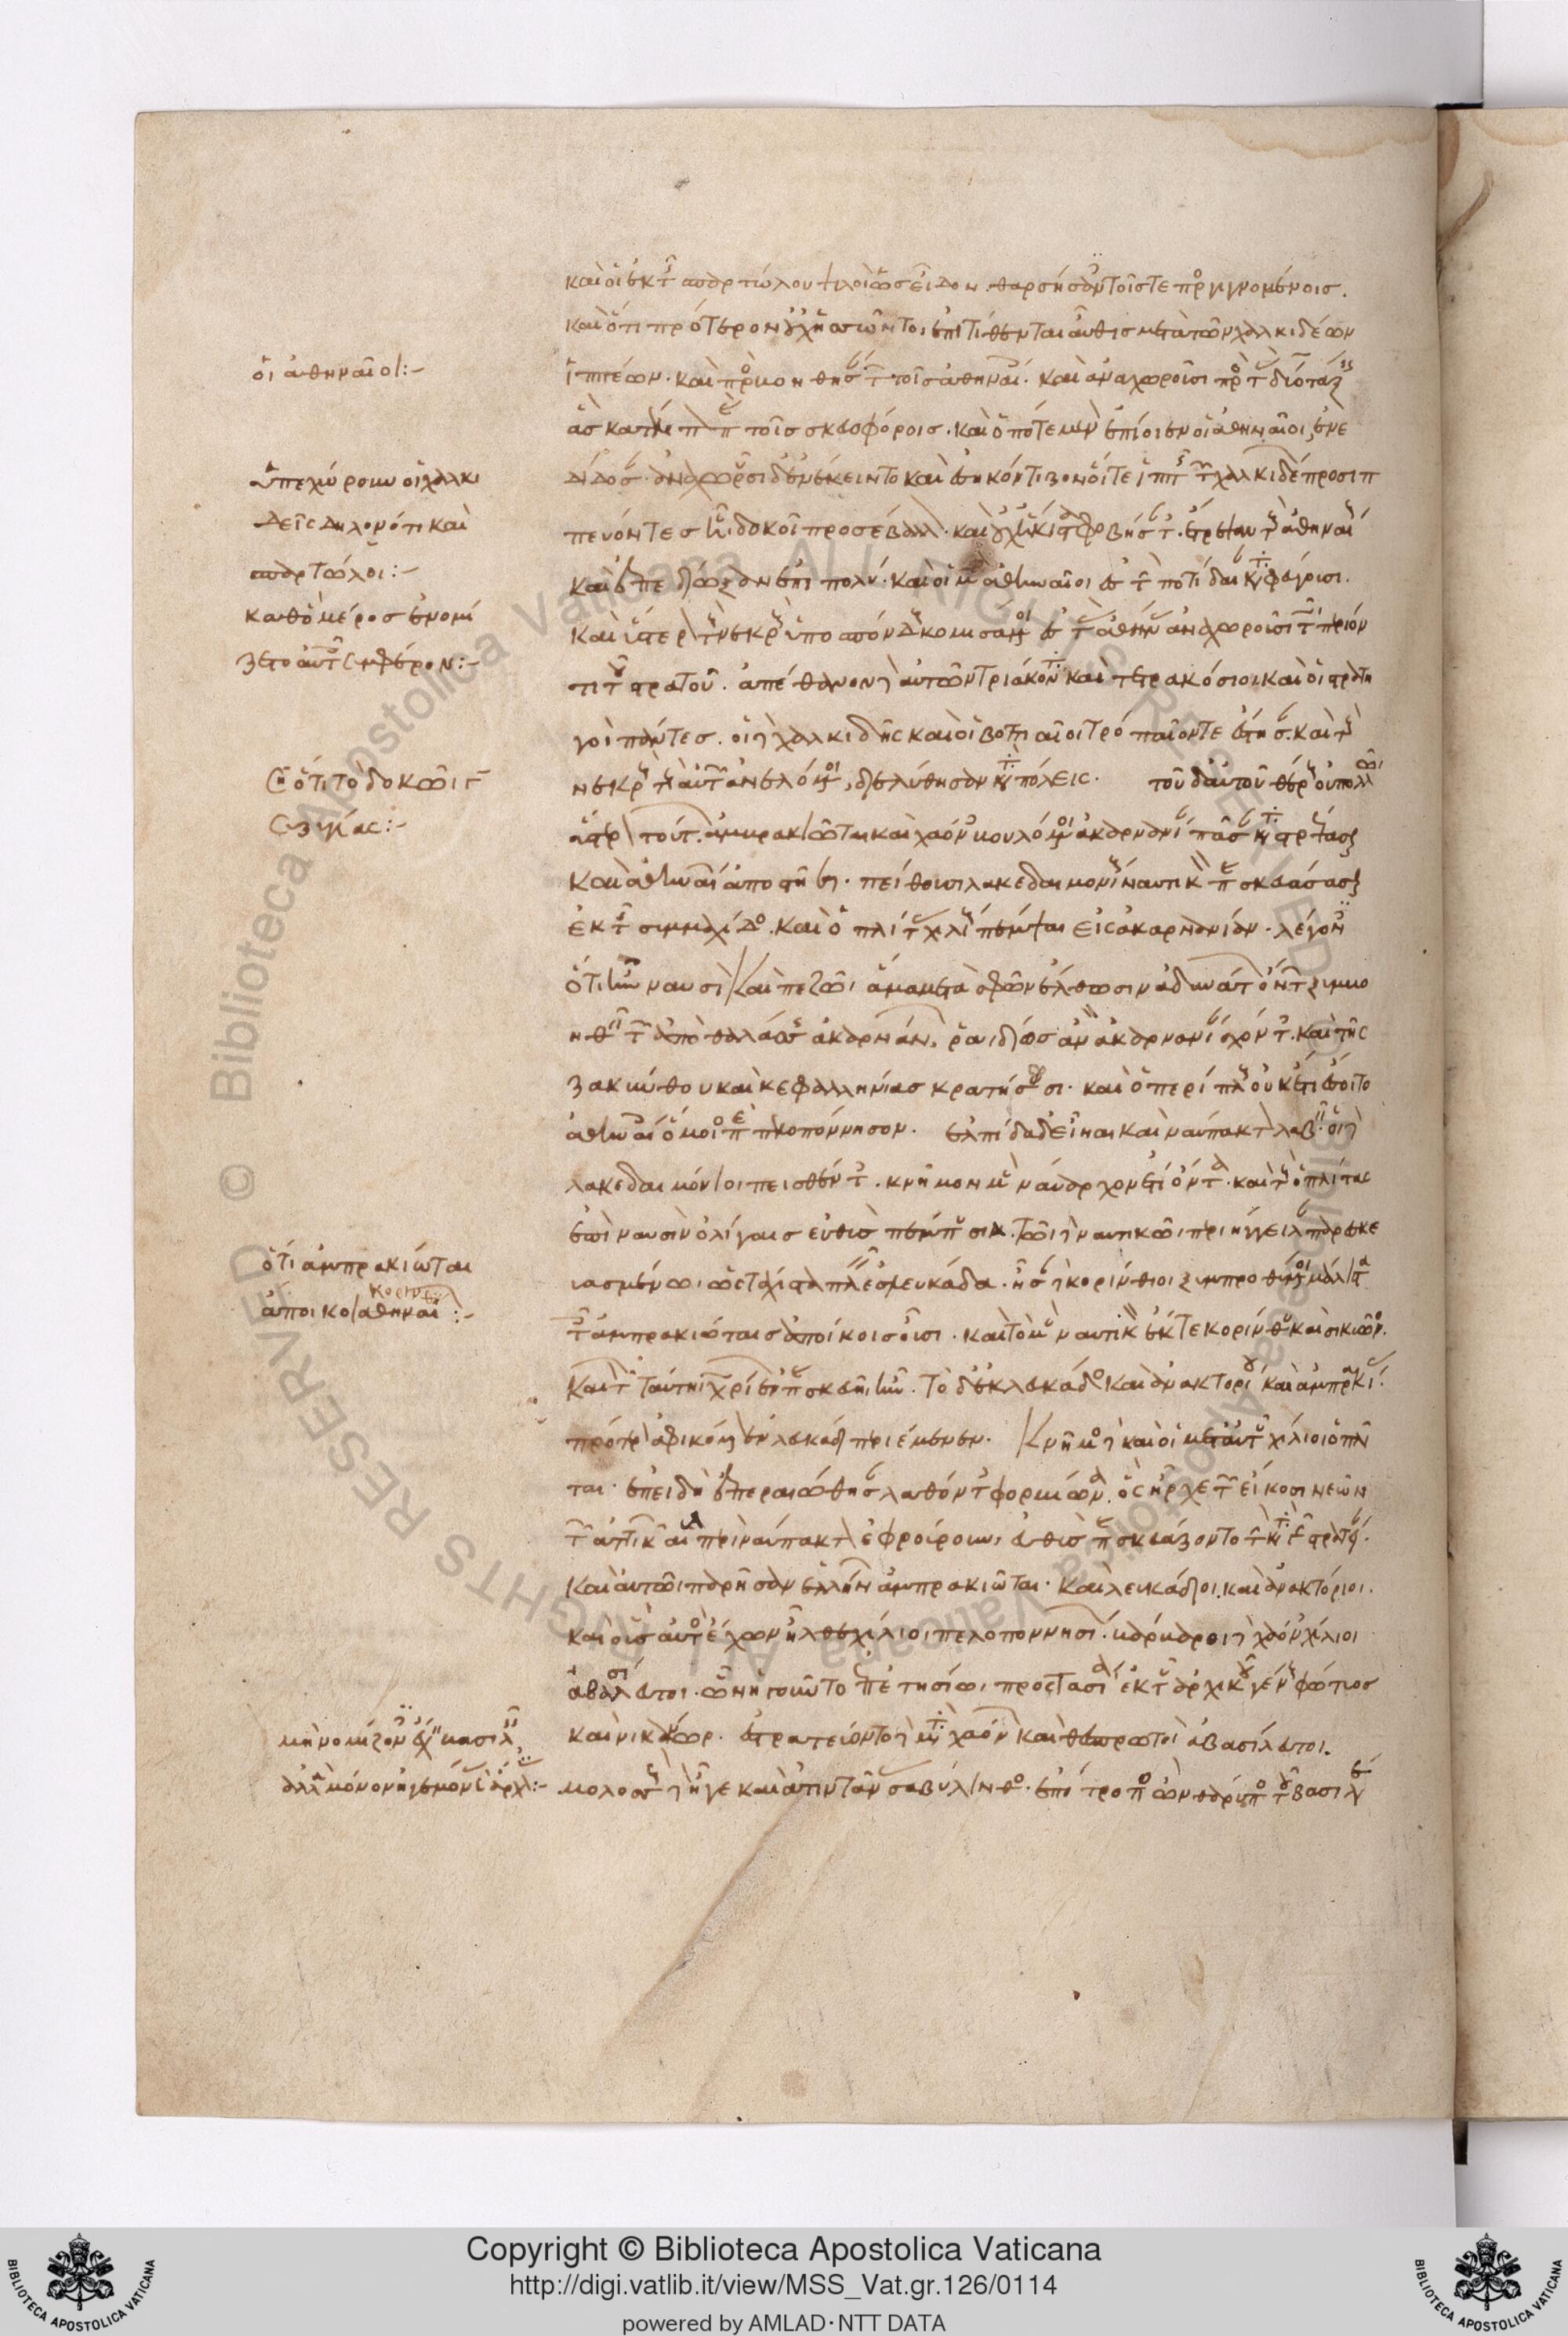 καὶ οἱ ἐκ τῆς σπαρτώλου ψιλοὶ ὡς εἶδον. θαρσήσαντες τοῖς τε προσγιγνομένοις.
καὶ ὅτι πρότερον οὐχ ἥσσηντο, ἐπιτίθενται αὖθις μετὰ τῶν χαλκιδέων
ἱππέων. καὶ τοῖς ἀθηναίοις. καὶ ἀναχωροῦσι πρὸς τὰς δύο τάξεις
ἃς κατέλιπον παρὰ τοῖς σκευοφόροις. καὶ ὁπότε μὲν ἐπίοιεν οἱ ἀθηναῖοι, ἐνε
δίδοσαν. ἀναχωροῦσι δ' ἐνέκειντο καὶ ἐσηκόντιζον οἵ τε ἱππῆς τῶν χαλκιδέων προσιπ
πεύοντες ᾗ δοκοῖ προσέβαλλον. καὶ οὐχ ἥκιστα φοβήσαντες. ἔτρεψαν τοὺς ἀθηναίους
καὶ ἐπεδίωξαν ἐπὶ πολύ. καὶ οἱ μὲν ἀθηναῖοι ἐς τὴν ποτίδαιαν καταφεύγουσι.
καὶ ὕστερον τοὺς νεκροὺς ὑποσπόνδους κομισάμενοι ἐς τὰς ἀθήνας ἀναχωροῦσι τῷ περιόν
τι τοῦ στρατοῦ. ἀπέθανον δὲ αὐτῶν τριάκοντα καὶ τετρακόσιοι καὶ οἱ στρατη
γοὶ πάντες. οἱ δὲ χαλκιδῆς καὶ οἱ βοττιαῖοι τροπαῖόν τε ἔστησαν. καὶ τοὺς
νεκροὺς τοὺς αὑτῶν ἀνελόμενοι, διελύθησαν κατὰ πόλεις. τοῦ δ' αὐτοῦ θέρους οὐ πολλῶι
ὕστερον τούτων. ἀμπρακιῶται καὶ χαόνες βουλόμενοι ἀκαρνανίαν πᾶσαν καταστρέψασθαι
καὶ ἀθηναίων ἀποστῆσαι. πείθουσι λακεδαιμονίους ναυτικὸν παρασκευάσασθαι
ἐκ τῆς ξυμμαχίδος. καὶ ὁπλίτας χιλίους πέμψαι εἰς ἀκαρνανίαν. λέγοντες
ὅτι ἢν ναυσὶ καὶ πεζῶι ἅμα μετὰ σφῶν ἔλθωσιν ἀδυνάτων ὄντων ξυμβο
ηθεῖν τῶν ἀπὸ θαλάσσης ἀκαρνάνων. ῥαιδίως ἂν ἀκαρνανίαν σχόντες. καὶ τῆς
ζακύνθου καὶ κεφαλληνίας κρατήσουσι. καὶ ὁ περίπλους οὐκέτι ἔσοιτο
ἀθηναίοις ὁμοίως περὶ πελοπόννησον. ἐλπίδα δ' εἶναι καὶ ναύπακτον λαβεῖν. οἱ δὲ
λακεδαιμόνιοι πεισθέντες. κνῆμον μὲν ναύαρχον ἔτι ὄντα. καὶ τοὺς ὁπλίτας
ἐπὶ ναυσὶν ὀλίγαις εὐθὺς πέμπουσιν. τῶι δὲ ναυτικῶι περιήγγειλαν παρεσκευ
ασμένωι ὡς τάχιστα πλεῖν ἐς λευκάδα. ἦσαν δὲ κορίνθιοι ξυμπροθυμούμενοι μάλιστα
τοῖς ἀμπρακιώταις ἀποίκοις οὖσι. καὶ τὸ μὲν ναυτικὸν ἔκ τε κορίνθου καὶ σικυῶνος.
καὶ τῶν ταύτηι χωρίων ἐν παρασκευῆι ἦν. τὸ δ' ἐκ λευκάδος καὶ ἀνακτορίου καὶ ἀμπρακίας.
πρότερον ἀφικόμενον ἐν λευκάδι περιέμενεν. κνῆμος δὲ καὶ οἱ μετ' αὐτοῦ χίλιοι ὁπλῖ
ται. ἐπειδὴ ἐπεραιώθησαν λαθόντες φορμίωνα. ὃς ἦρχε τῶν εἴκοσι νεῶν
τῶν ἀττικῶν αἳ περὶ ναύπακτον ἐφρούρουν, εὐθὺς παρεσκευάζοντο τὴν κατὰ γῆν στρατείαν.
καὶ αὐτῶι παρῆσαν ἑλλήνων ἀμπρακιῶται. καὶ λευκάδιοι. καὶ ἀνακτόριοι.
καὶ οὓς αὐτὸς ἔχων ἦλθε χίλιοι πελοποννησίων. βάρβαροι δὲ χάονες χίλιοι
ἀβασίλευτοι. ὧν ἡγοῦντο ἐπετησίωι προστασίαι ἐκ τοῦ ἀρχικοῦ γένους φώτιος
καὶ νικάνωρ. ἐστρατεύοντο δὲ μετὰ χαόνων καὶ θεσπρωτοὶ ἀβασίλευτοι.
μολοσσοὺς δὲ ἦγε καὶ ἀτιντᾶνας σαβύλινθος. ἐπίτροπος ὢν θαρύπου τοῦ βασιλέως
οἱ ἀθηναῖοι:-
ὑπεχώρουν οἱ χαλκι
δεῖς δηλονότι καὶ
σπαρτώλιοι:-
καθ' ὃ μέρος ἐνομί
ζετο αὐτοῖς συμφέρον:-
ὅτι τὸ δοκῶι
συζυγίας:-
ὅτι ἀμπρακιῶται
ἄποικοι ἀθηναίων:-
μὴ νομίζοντες
ἀλλὰ μόνον ἡγεμόνας:-
Copyright © Biblioteca Apostolica Vaticana
http://digi.vatlib.it/view/MSS_Vat.gr.126/0114
powered by AMLAD·NTT DATA